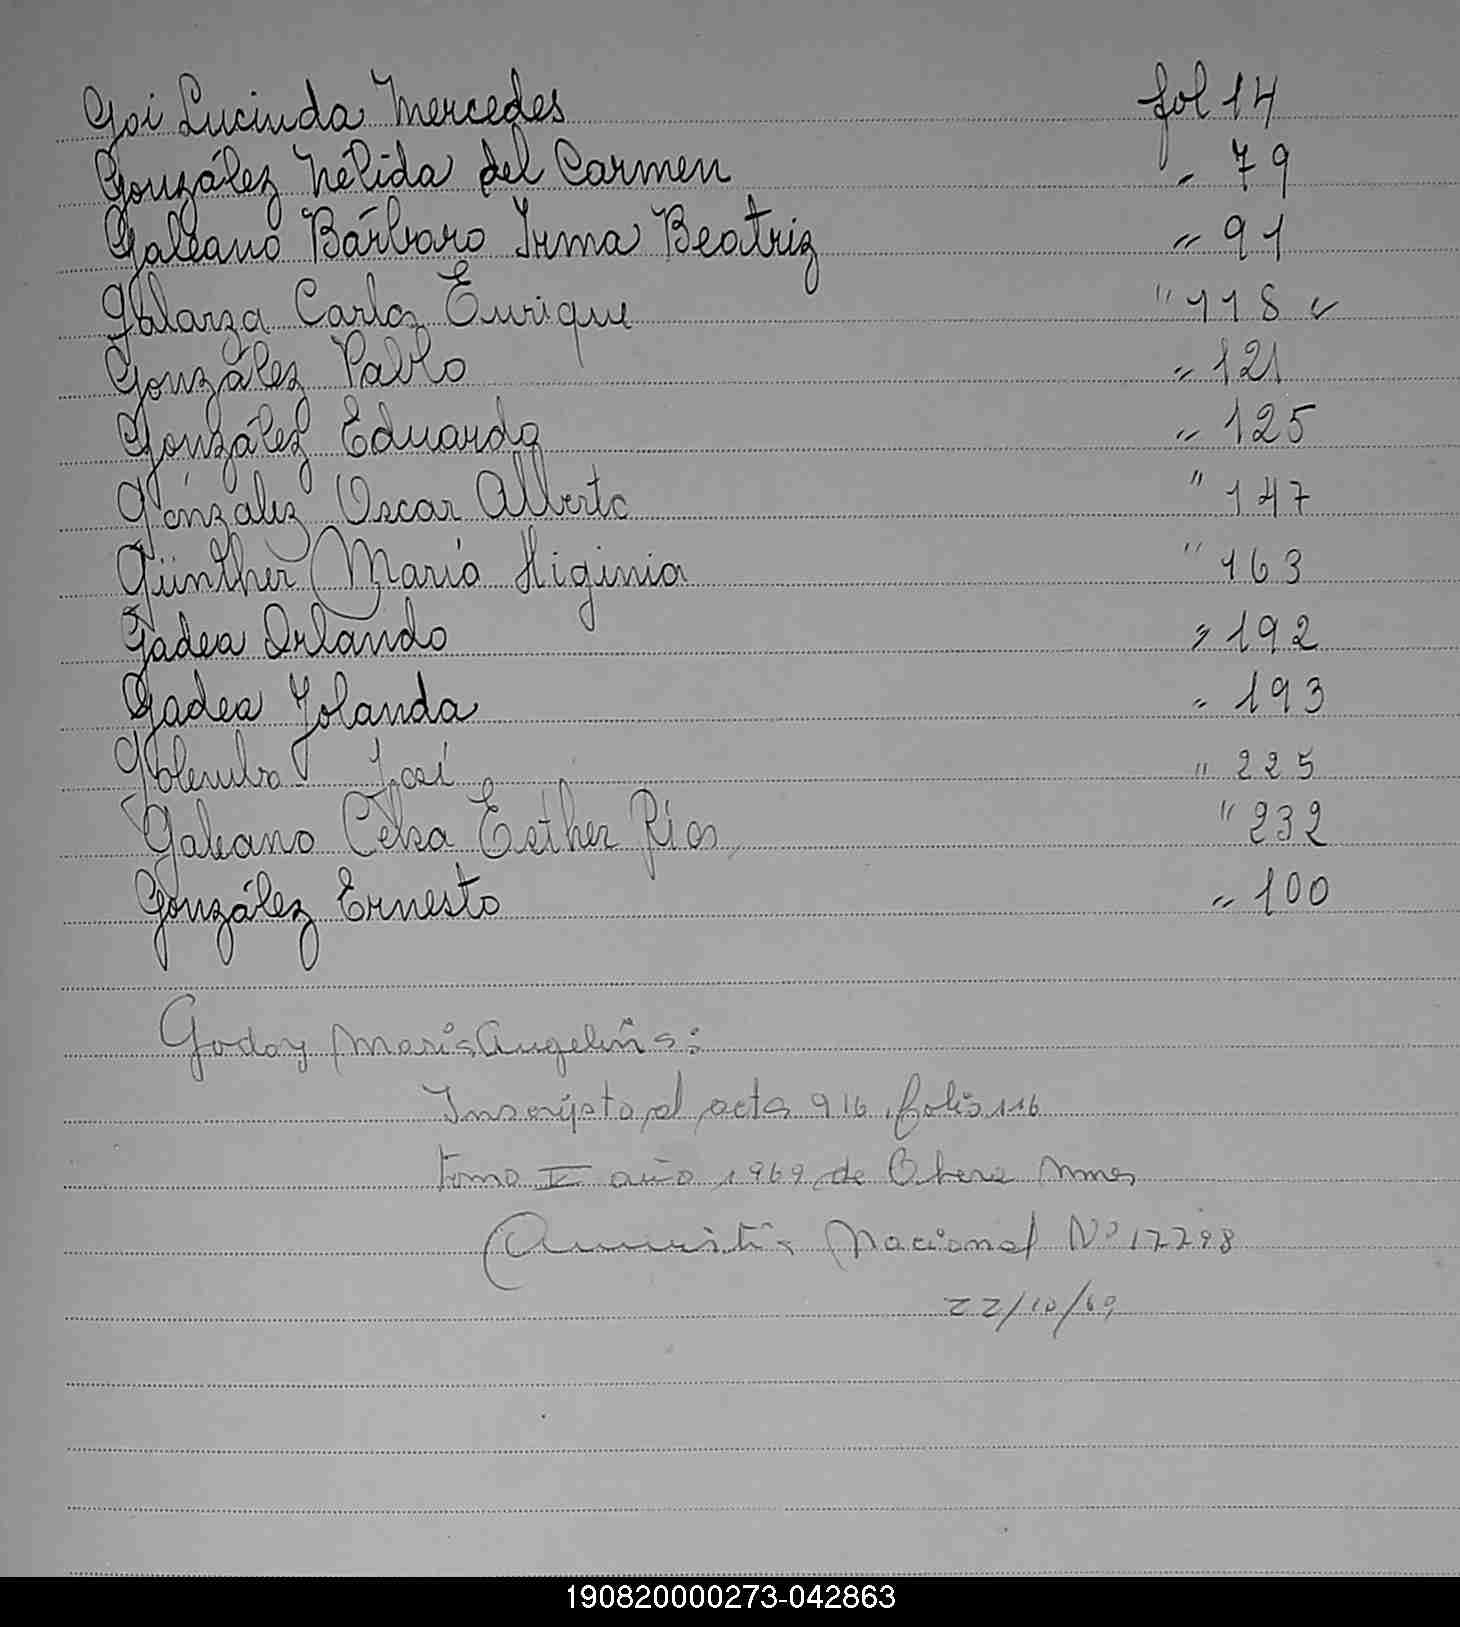 Goi Lucinda Mercedes fol 14
González Nélida del Carmen " 79
Galeano Bárbaro Irma Beatriz " 91
Galarza Carlos Enrique " 118 ✓
González Pablo " 121
González Eduardo " 125
Gónzalez Oscar Alberto " 147
Günther María Higinia " 163
Gadea Orlando " 192
Gadea Yolanda " 193
Golemba José " 225
Galeano Celsa Esther Ríos " 232
González Ernesto " 100
Godoy Maria Angelina:
Inscripto al acta 916 folio 116
tomo año 1969 de Obera Mnes
Amnistia Nacional Nº 17298
22/10/69
190820000273-042863